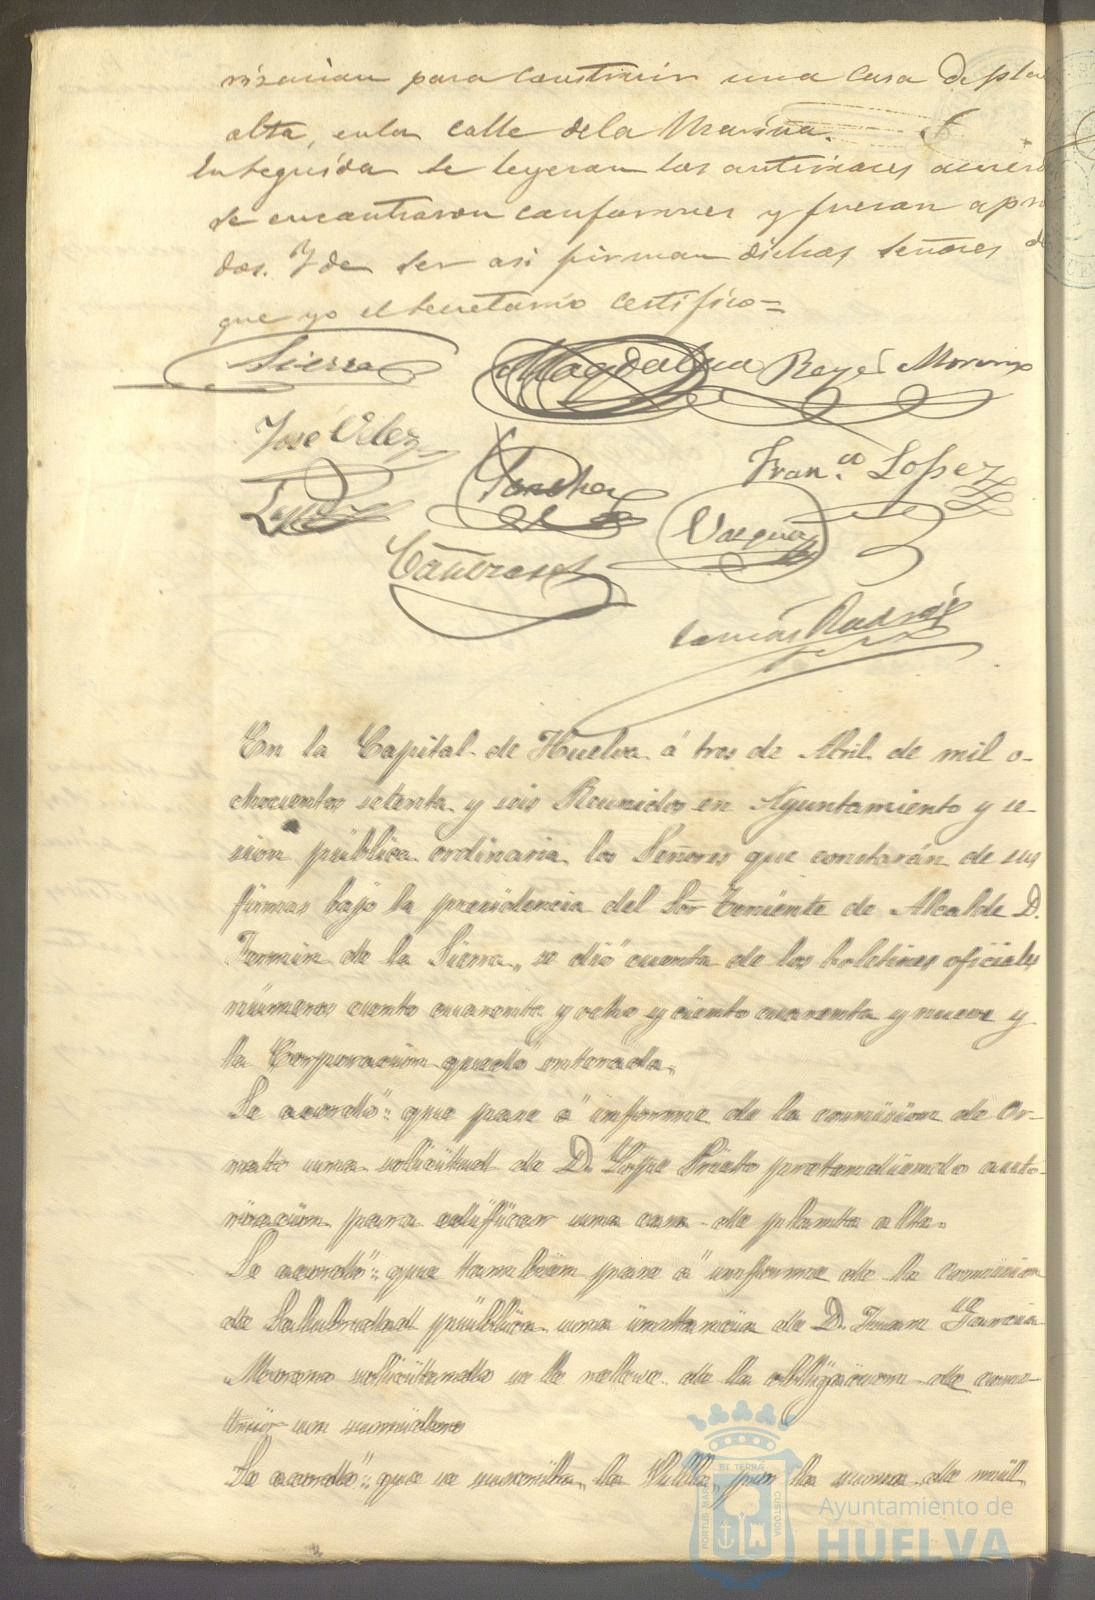 rizacion para construir una casa de plan
alta, en la calle de la Marina.
Enseguida se leyeron los anteriores acuer
se encontraron conformes y fueron apro
dos. Y de ser asi firman dichos Señores de
que yo el Secretario certifico=
Sierra Magdalena Reyes Moreno
José Velez
Sanchez Fran.co Lopez
Vazquez
Cañizares
Tomás
En la Capital de Huelva á tres de Abril de mil o-
chocientos setenta y seis Reunidos en Ayuntamiento y se-
sion pública ordinaria los Señores que constarán de sus
firmas bajo la presidencia del Sor Teniente de Alcalde D.
Fermin de la Sierra, se dió cuenta de los boletines oficiales
números ciento cuarenta y ocho y ciento cuarenta y nueve y
la Corporacion quedó enterada.
Se acordó: que pase á informe de la comision de Or-
nato una solicitud de D. Lope Prieto pretendiendo auto-
rizacion para edificar una casa de planta alta.
Se acordó: que tambien pase á informe de la comision
de Salubridad pública una instancia de D. Juan Garcia
Moreno solicitando se le releve de la obligacion de cons-
truir un sumidero
Se acordó: que se suscriba la Villa, por la suma de mil
PORTUS MARIS ET TERRAE CUSTODIA
Ayuntamiento de
HUELVA